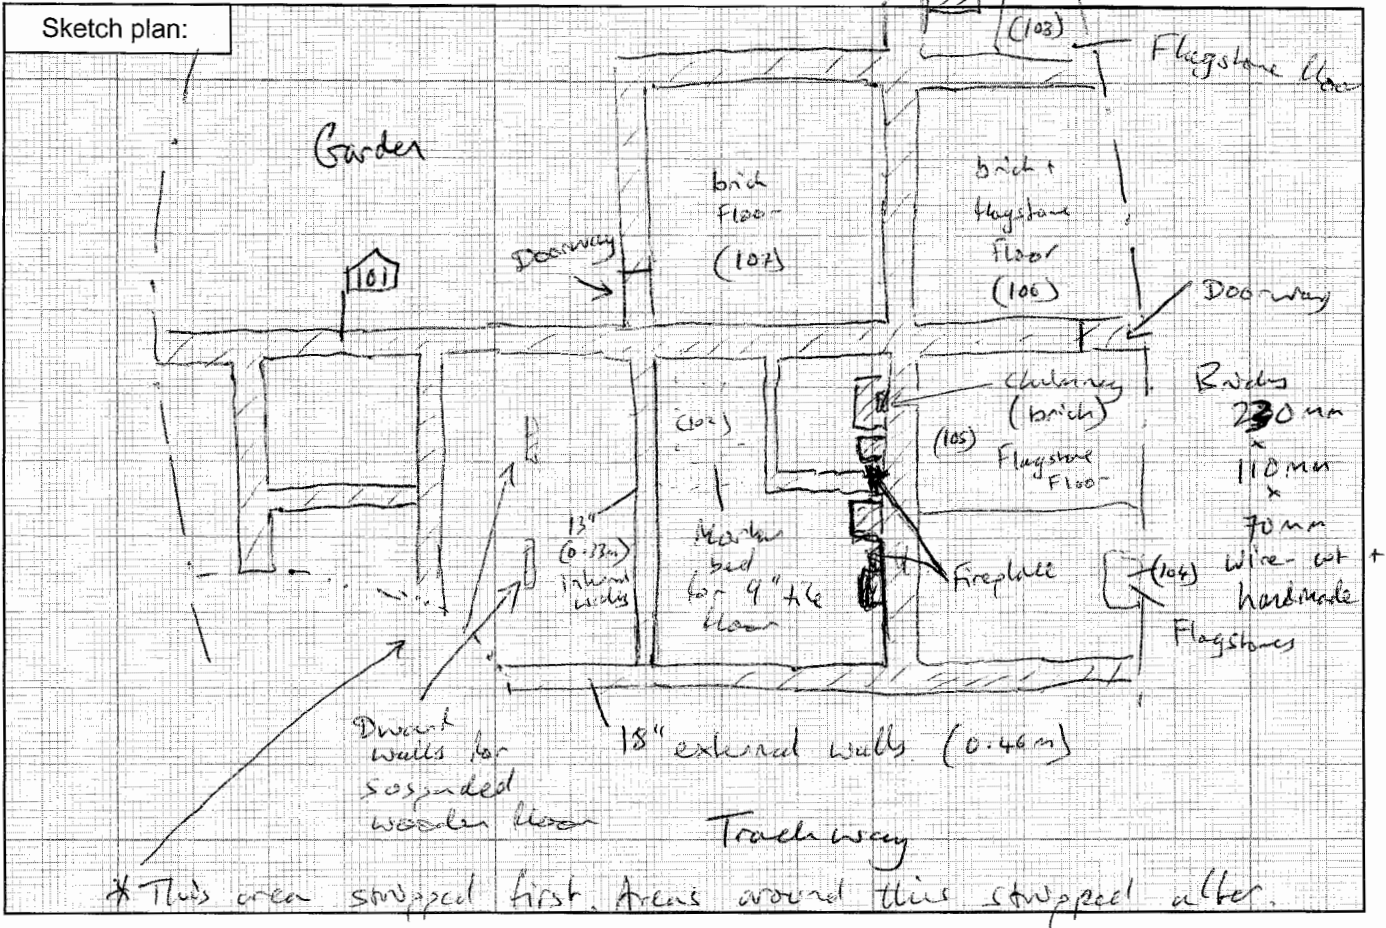 Sketch plan:
(103)
Flagstone floor
Garden
brick
Floor
(107)
brick +
flagstone
Floor
(106)
Doorway
101
Doorway
Chimney
(brick)
(105)
Flagstone
Floor
(102)
Bricks
230 mm
x
110 mm
x
70 mm
Wire-cut +
handmade
13"
(0.33m)
internal
walls
Mortar
bed
for 9" tile
floor
Fireplace
(104)
Flagstones
Dwarf
walls for
suspended
wooden floor
18" external walls (0.46m)
Trackway
* This area stripped first. Areas around this stripped after.